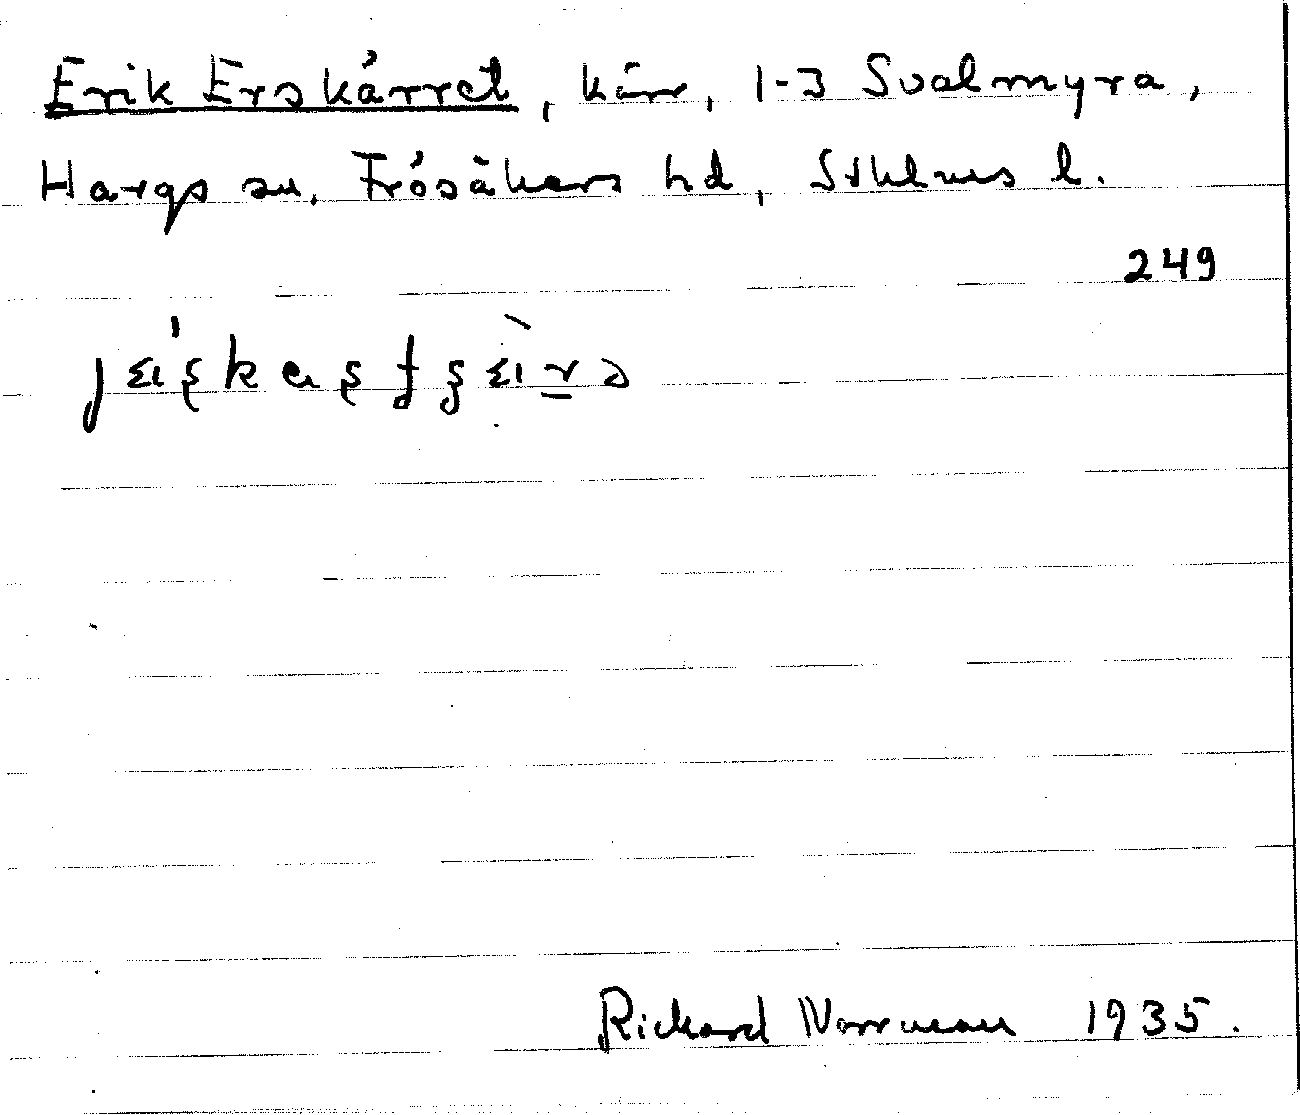 Erik Erskärret, kärr, 1-3 Svalmyra,
Hargs sn, Frösåkers hd, Sthlms l.
249
Rickard Norrman 1935.